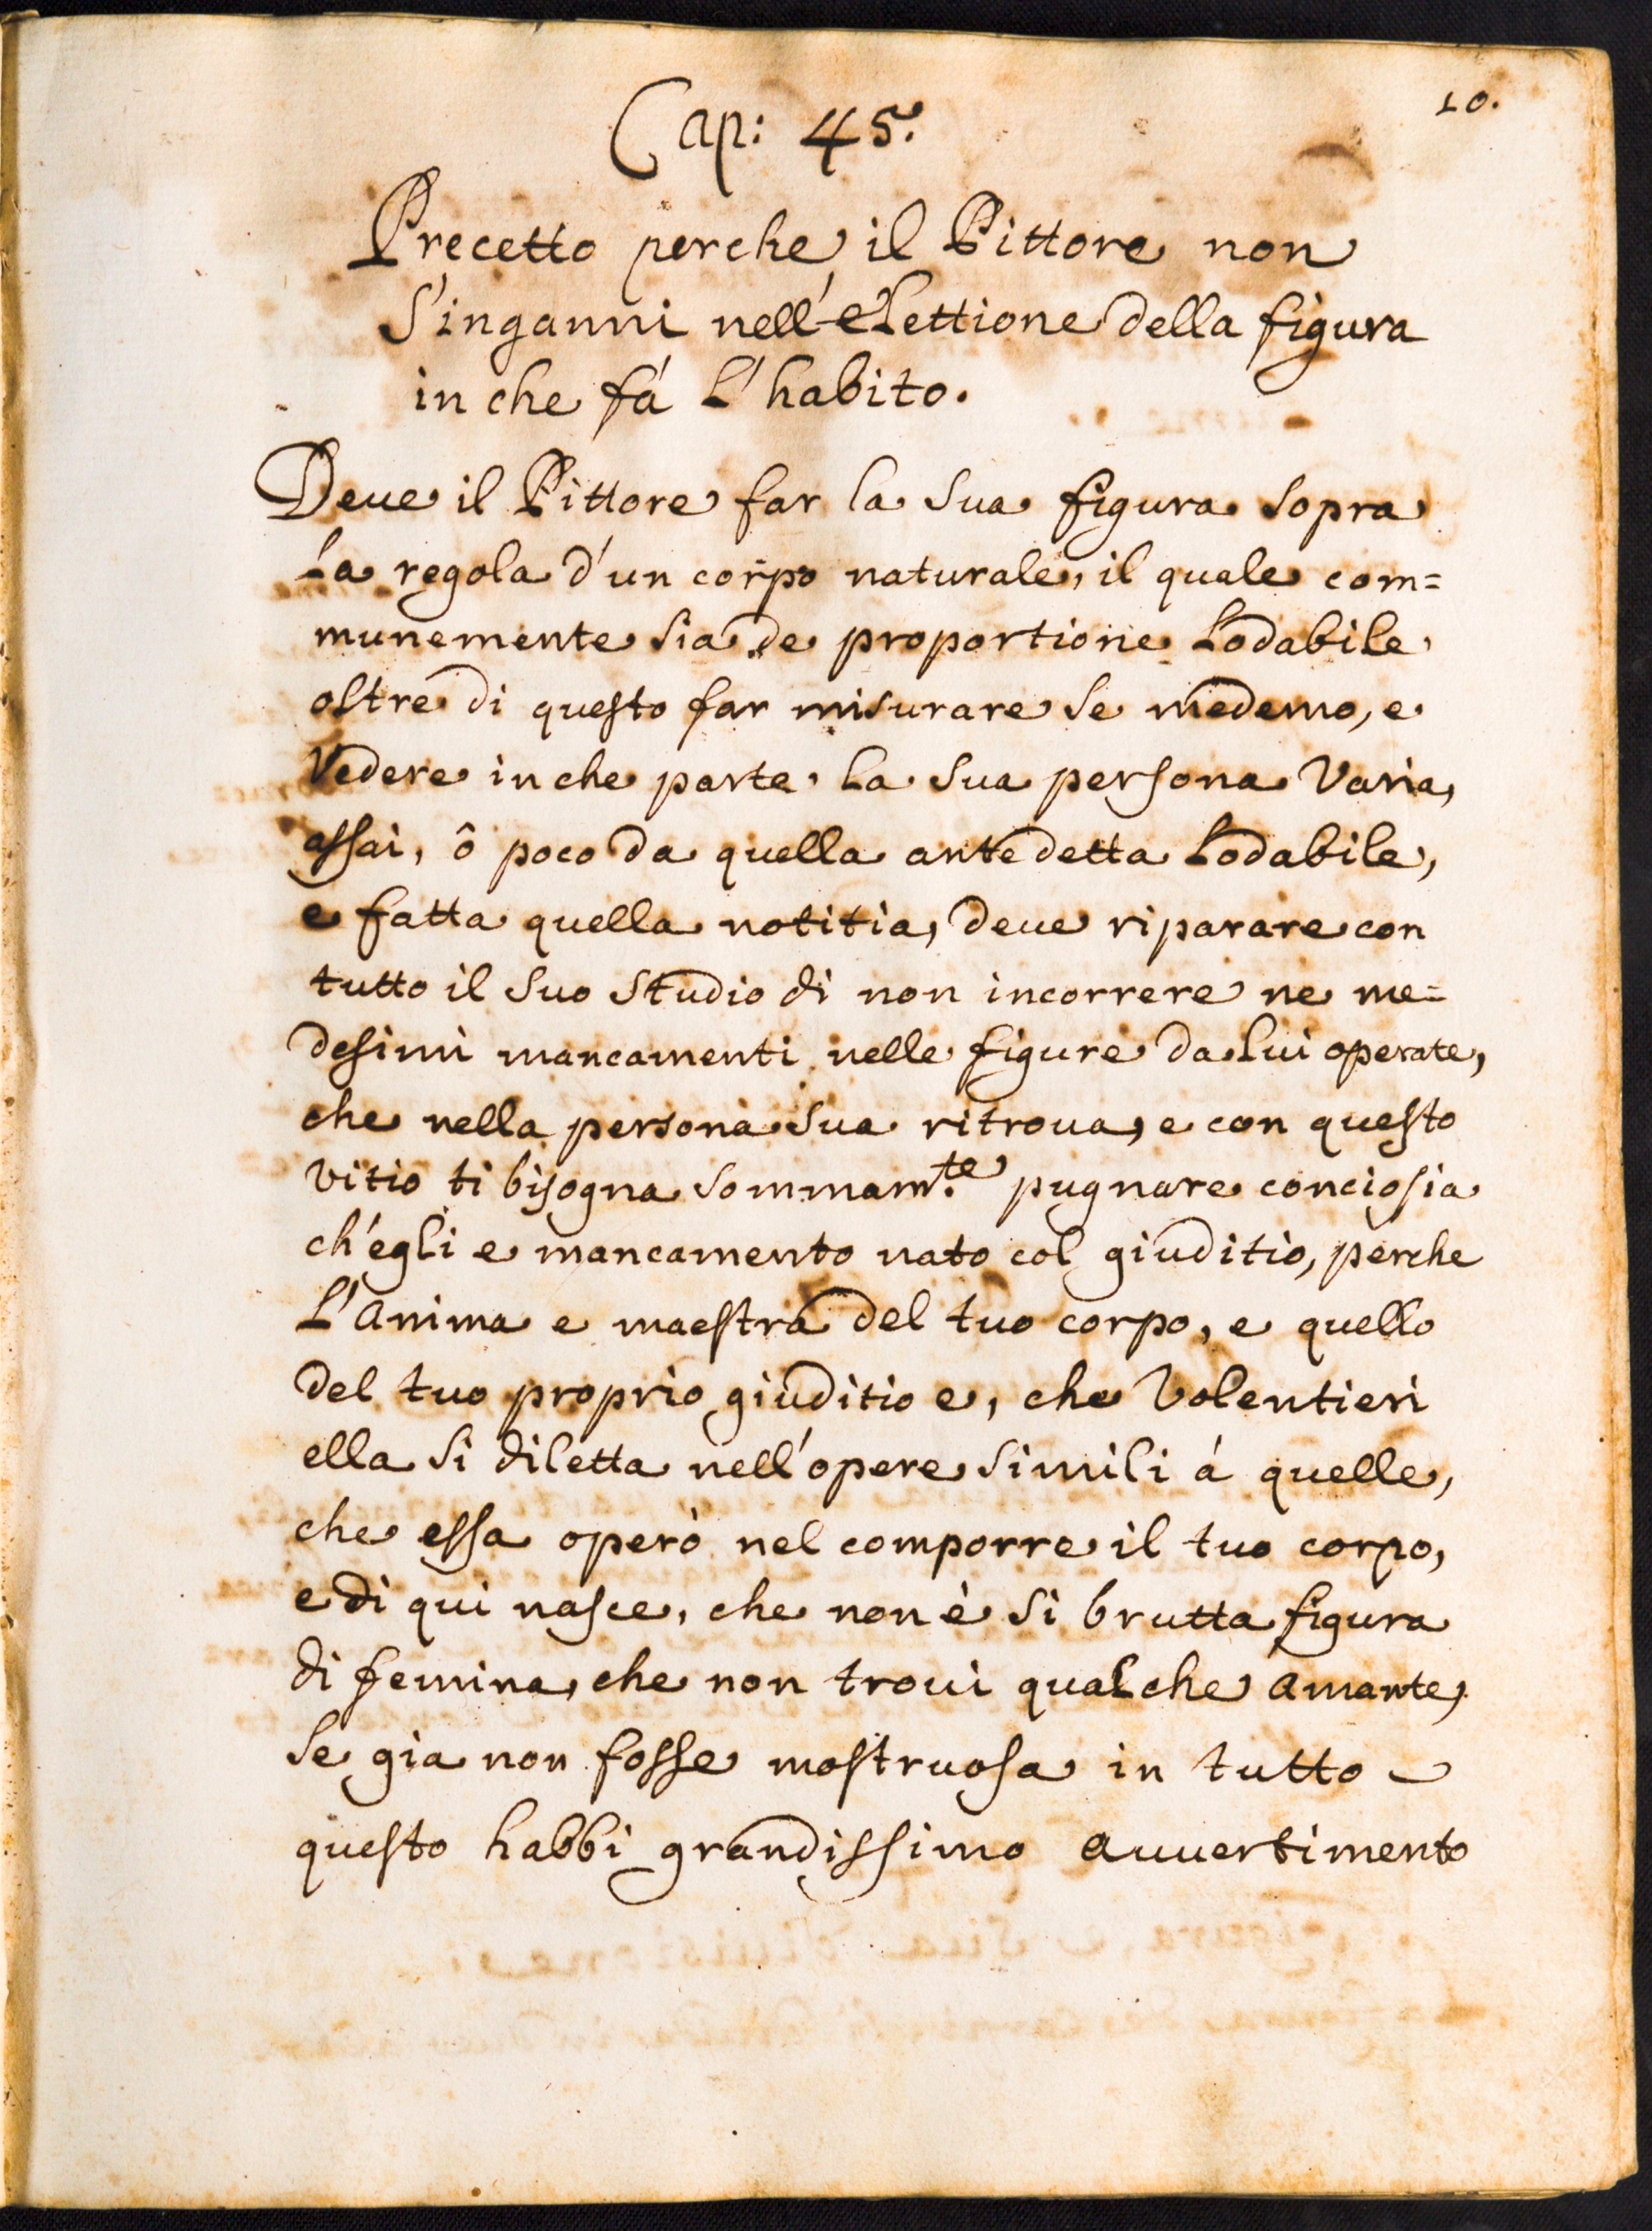 10.
Cap: 45.
Precetto perche il Pittore non
S'inganni nell'elettione della figura
in che fá L'habito.
Deue il Pittore far la sua figura sopra
La regola d'un corpo naturale, il quale com=
munemente sia de proportione Lodabile
oltre di questo far misurare se medemo, e
Vedere in che parte la sua persona Varia,
assai, ô poco da quella antedetta Lodabile,
e fatta quella notitia, deue riparare con
tutto il suo studio di non incorrere ne me=
desimi mancamenti nelle figure da lui operate,
che nella persona sua ritroua, e con questo
Vitio ti bisogna sommam.te pugnare conciosia
ch'egli e mancamento nato col giuditio, perche
L'anima e maestra del tuo corpo, e quello
del tuo proprio giuditio e, che Volentieri
ella si diletta nell'opere simili á quelle,
che essa operò nel comporre il tuo corpo,
e di qui nasce, che non è si brutta figura
di femina, che non troui qualche amante,
se gia non fosse mostruosa in tutto
questo habbi grandissimo auuertimento